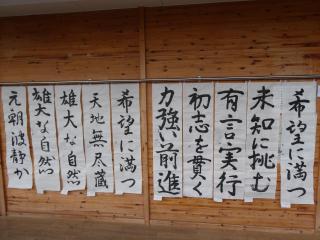 希望に満つ
未知に挑む
有言実行
初志を貫く
力強い前進
希望に満つ
天地無尽蔵
雄大な自然
雄大な自然
元朝波静か